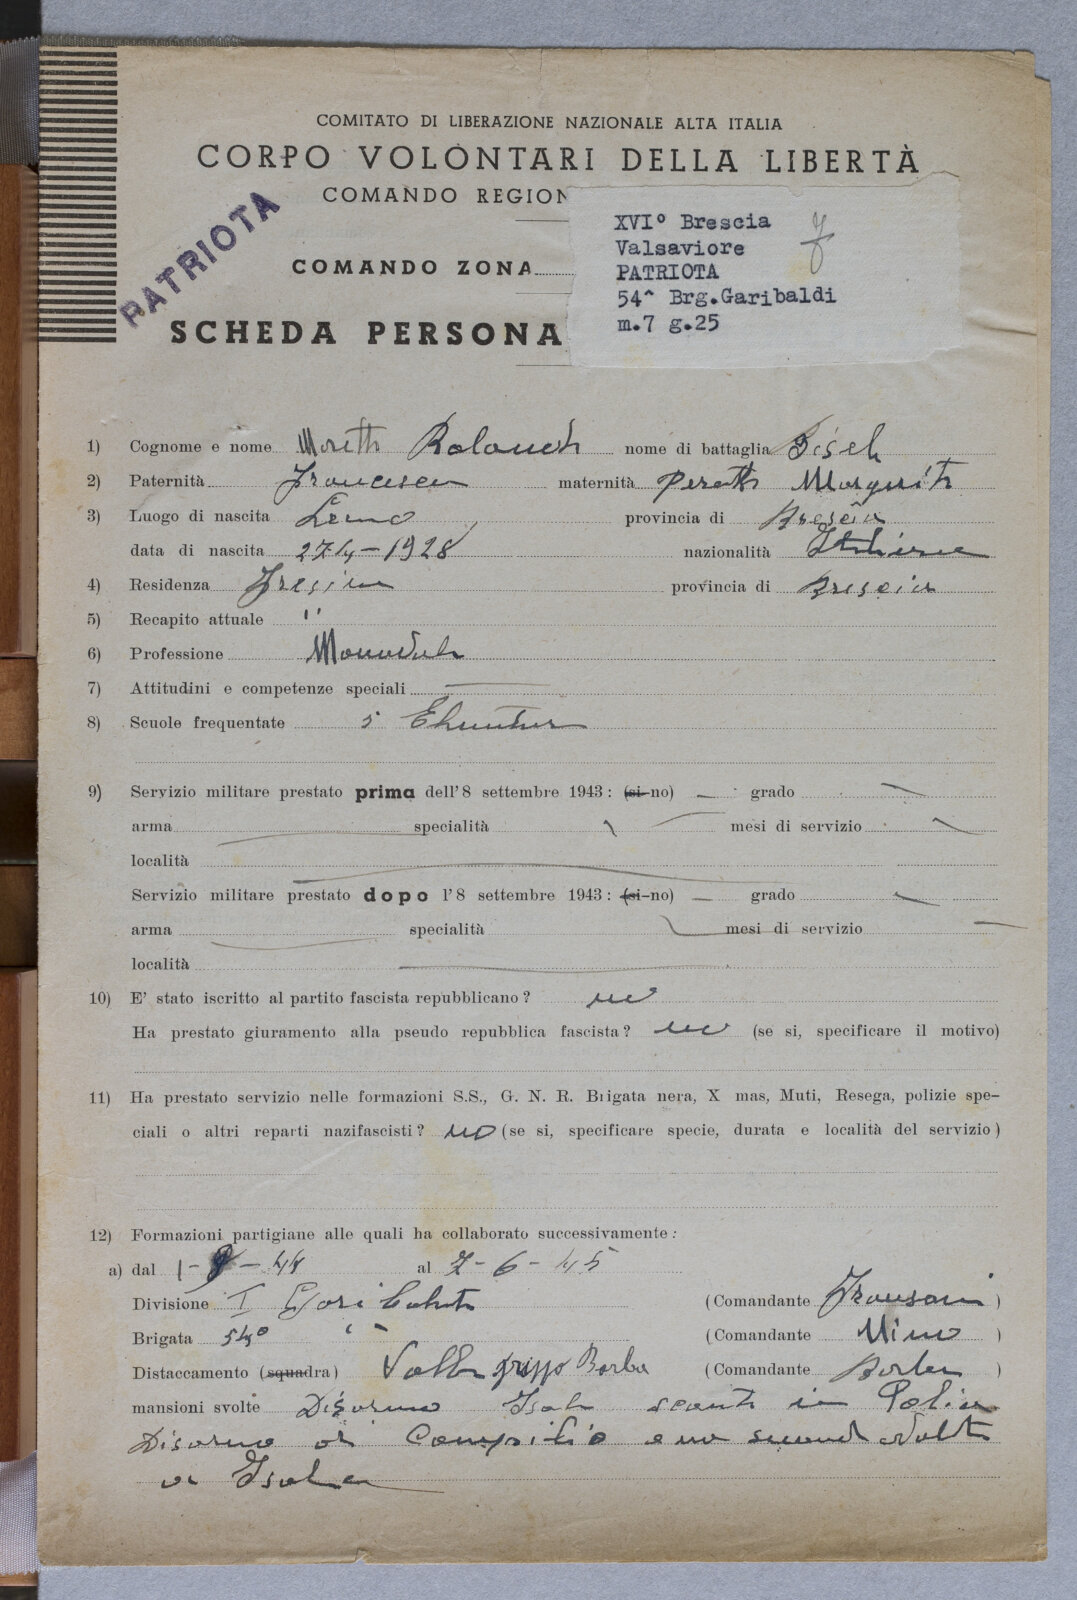 COMITATO DI LIBERAZIONE NAZIONALE ALTA ITALIA
CORPO VOLONTARI DELLA LIBERTÀ
COMANDO REGION
PATRIOTA
XVI° Brescia
Valsaviore
PATRIOTA
54^ Brg.Garibaldi
m.7 g.25
COMANDO ZONA
SCHEDA PERSONA
1) Cognome e nome Moretti nome di battaglia
2) Paternità Francesco maternità Margarita
3) Luogo di nascita Leno provincia di Brescia
data di nascita 27-4-1928 nazionalità Italiana
4) Residenza provincia di Brescia
5) Recapito attuale "
6) Professione
7) Attitudini e competenze speciali —
8) Scuole frequentate 5
9) Servizio militare prestato prima dell'8 settembre 1943: (si-no) — grado
arma specialità mesi di servizio
località
Servizio militare prestato dopo l'8 settembre 1943: (si-no) — grado
arma specialità mesi di servizio
località
10) E' stato iscritto al partito fascista repubblicano? no
Ha prestato giuramento alla pseudo repubblica fascista? no (se si, specificare il motivo)
11) Ha prestato servizio nelle formazioni S.S., G. N. R. Brigata nera, X mas, Muti, Resega, polizie spe-
ciali o altri reparti nazifascisti? no (se si, specificare specie, durata e località del servizio)
12) Formazioni partigiane alle quali ha collaborato successivamente:
a) dal 1-9-44 al 7-6-45
Divisione I (Comandante )
Brigata 54° " (Comandante Nino )
Distaccamento (squadra) gruppo Barba (Comandante Barba )
mansioni svolte Disarmo Isola in
Disarmo di una seconda volta
a Isola